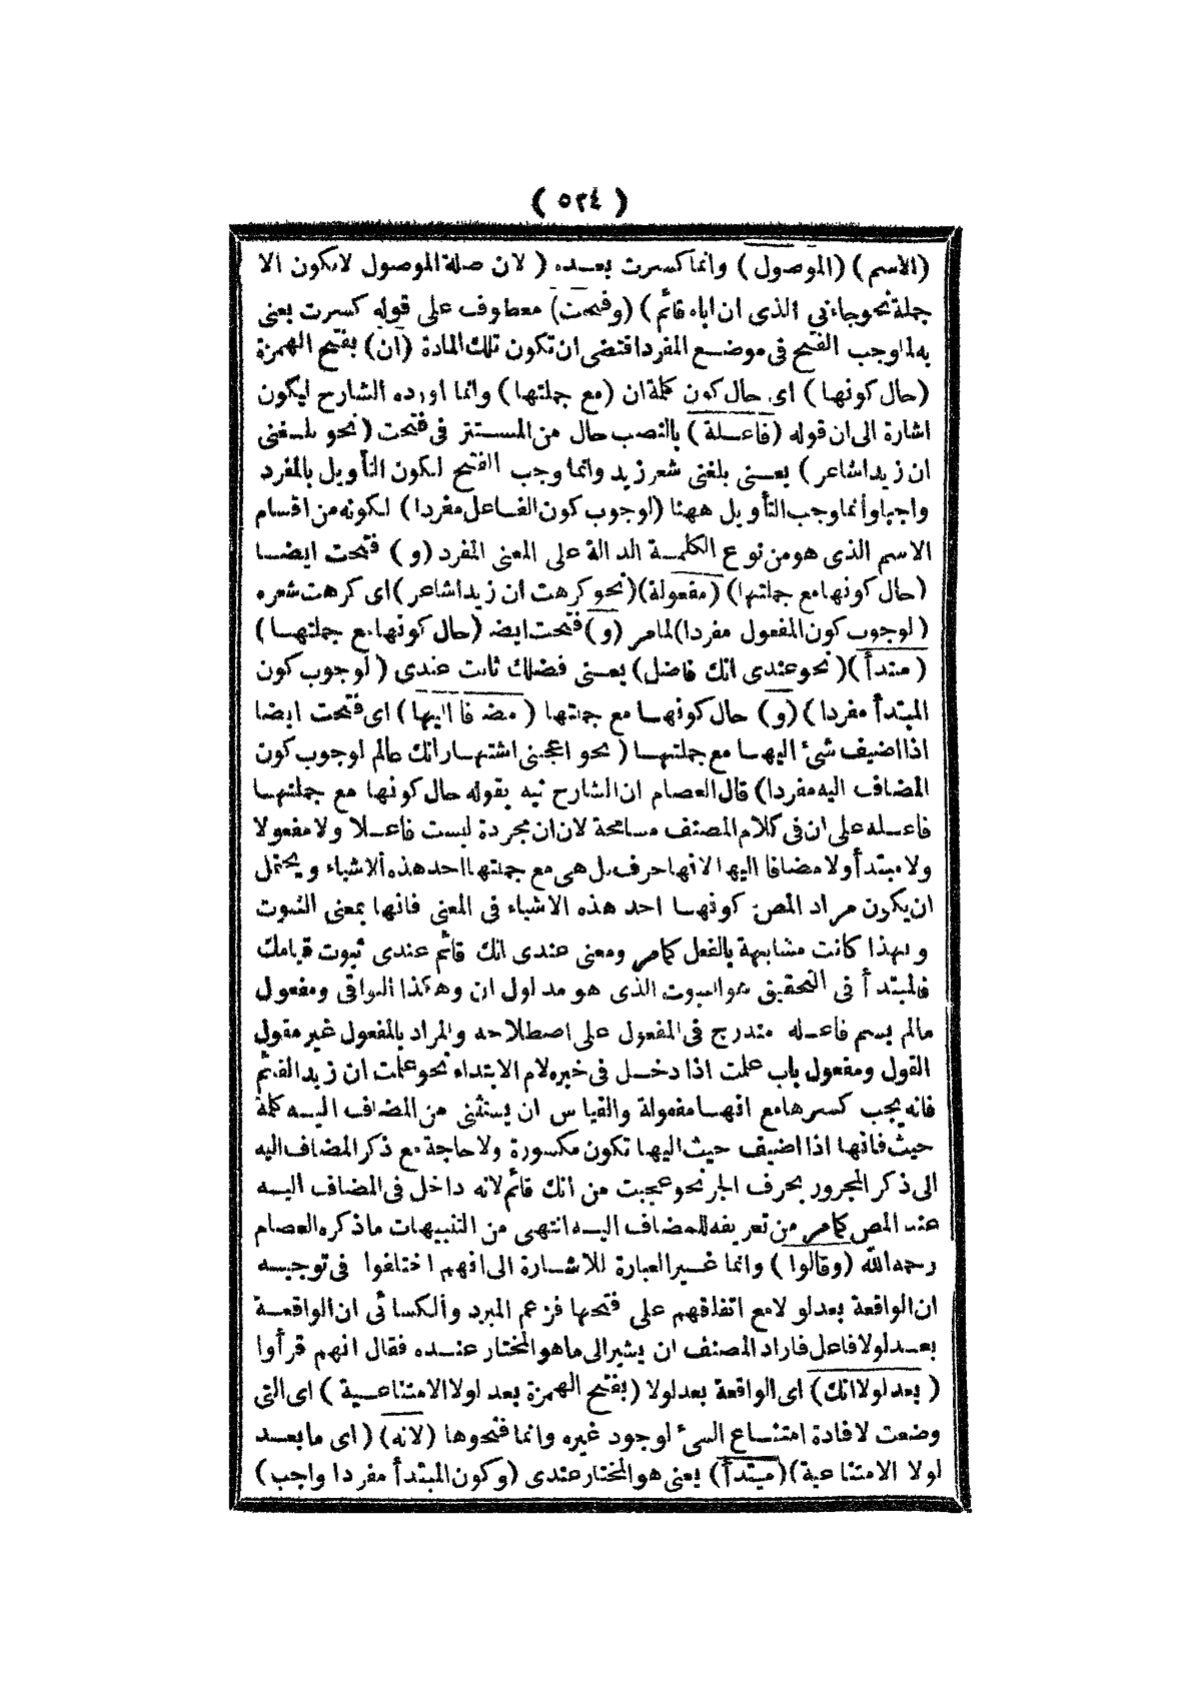 ( ٥٢٤ )
(الاسم) (الموصول) وانما كسرت بعده ( لان صلة الموصول لا تكون الا
جملة نحو جاءنى الذى ان اباه قائم) (وفتحت) معطوف على قوله كسرت يعنى
به لما وجب الفتح فى موضع المفرد اقتضى ان تكون تلك المادة (ان) بفتح الهمزة
(حال كونها) اى حال كون كلمة ان (مع جملتها) وانما اورده الشارح ليكون
اشارة الى ان قوله (فاعلة) بالنصب حال من المستتر فى فتحت (نحو بلغنى
ان زيدا شاعر) يعنى بلغنى شعر زيد وانما وجب الفتح لكون التأويل بالمفرد
واجبا وانما وجب التأويل ههنا (لوجوب كون الفاعل مفردا) لكونه من اقسام
الاسم الذى هو من نوع الكلمة الدالة على المعنى المفرد (و) فتحت ايضا
(حال كونها مع جملتها) (مفعولة) (نحو كرهت ان زيدا شاعر) اى كرهت شعره
(لوجوب كون المفعول مفردا) لما مر (و) فتحت ايضا (حال كونها مع جملتها)
(مبتدأ) (نحو عندى انك فاضل) يعنى فضلك ثابت عندى (لوجوب كون
المبتدأ مفردا) (و) حال كونها مع جملتها (مضافا اليها) اى فتحت ايضا
اذا اضيف شئ اليها مع جملتها (نحو اعجبنى اشتهار انك عالم لوجوب كون
المضاف اليه مفردا) قال العصام ان الشارح نبه بقوله حال كونها مع جملتها
فاعله على ان فى كلام المصنف مسامحة لان ان مجردة ليست فاعلا ولا مفعولا
ولا مبتدأ ولا مضافا اليها لانها حرف بل هى مع جملتها احد هذه الاشياء ويحتمل
ان يكون مراد المص كونها احد هذه الاشياء فى المعنى فانها بمعنى الثبوت
وبهذا كانت مشابهة بالفعل كما مر ومعنى عندى انك قائم عندى ثبوت قيامك
فالمبتدأ فى التحقيق هو الثبوت الذى هو مدلول ان وهكذا البواقى ومفعول
مالم يسم فاعله مندرج فى المفعول على اصطلاحه والمراد بالمفعول غير مقول
القول ومفعول باب علمت اذا دخل فى خبره لام الابتداء نحو علمت ان زيدا لقائم
فانه يجب كسرها مع انها مفعولة والقياس ان يستثنى من المضاف اليه كلمة
حيث فانها اذا اضيف حيث اليها تكون مكسورة ولا حاجة مع ذكر المضاف اليه
الى ذكر المجرور بحرف الجر نحو عجبت من انك قائم لانه داخل فى المضاف اليه
عند المص كما مر من تعريفه للمضاف اليه انتهى من التنبيهات ما ذكره العصام
رحمه الله (وقالوا) وانما غير العبارة للاشارة الى انهم اختلفوا فى توجيه
ان الواقعة بعد لولا مع اتفاقهم على فتحها فزعم المبرد والكسائى ان الواقعة
بعد لولا فاعل فاراد المصنف ان يشير الى ما هو المختار عنده فقال انهم قرأوا
(بعد لولا انك) اى الواقعة بعد لولا (بفتح الهمزة بعد لولا الامتناعية) اى التى
وضعت لافادة امتناع الشئ لوجود غيره وانما فتحوها (لانه) (اى ما بعد
لولا الامتناعية) (مبتدأ) يعنى هو المختار عندى (وكون المبتدأ مفردا واجب)